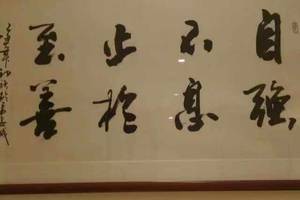 自强
不息
止於
至善